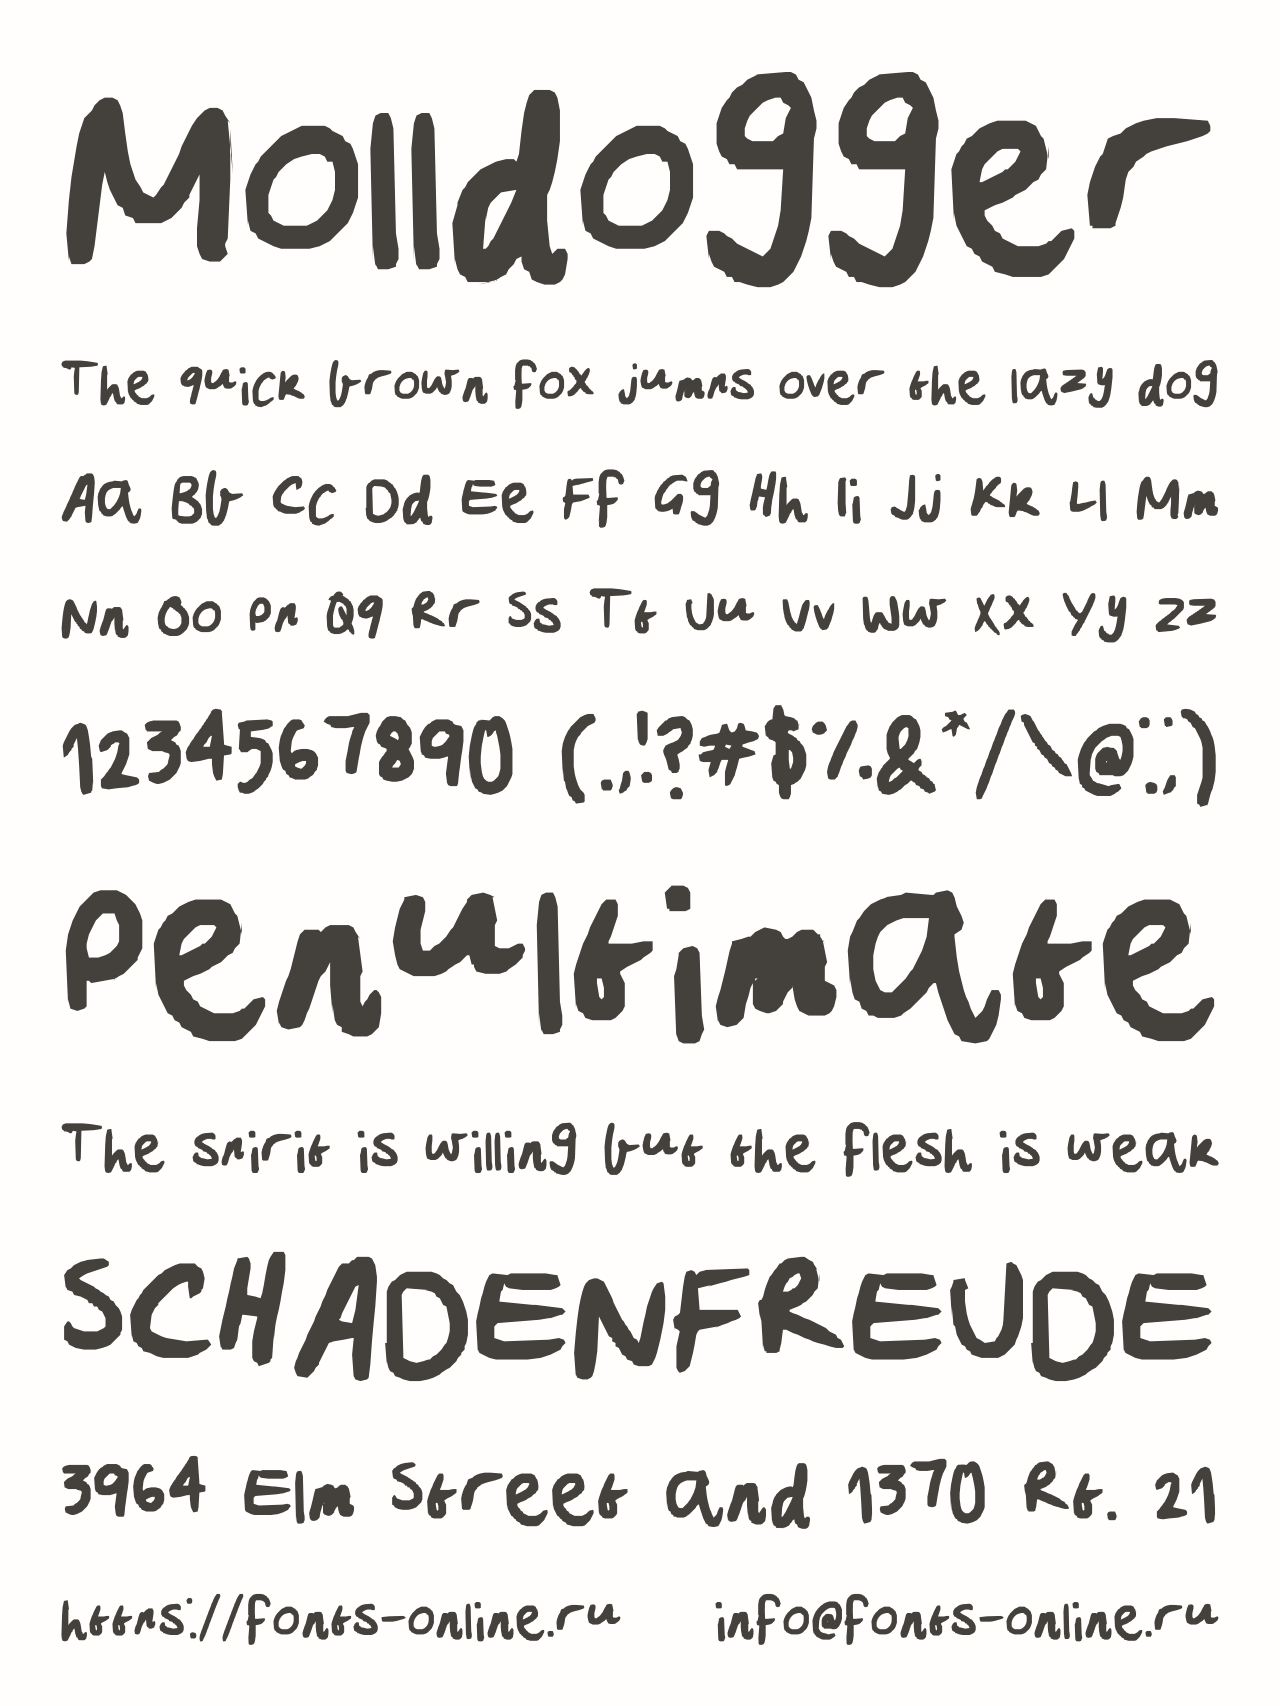 Molldogger
The quick brown fox jumps over the lazy dog
Aa Bb Cc Dd Ee Ff Gg Hh Ii Jj Kk Ll Mm
Nn Oo Pp Qq Rr Ss Tt Uu Vv Ww Xx Yy Zz
1234567890 (.,!?#$%&*/\@:;)
Penultimate
The spirit is willing but the flesh is weak
SCHADENFREUDE
3964 Elm Street and 1370 Rt. 21
https://fonts-online.ru info@fonts-online.ru